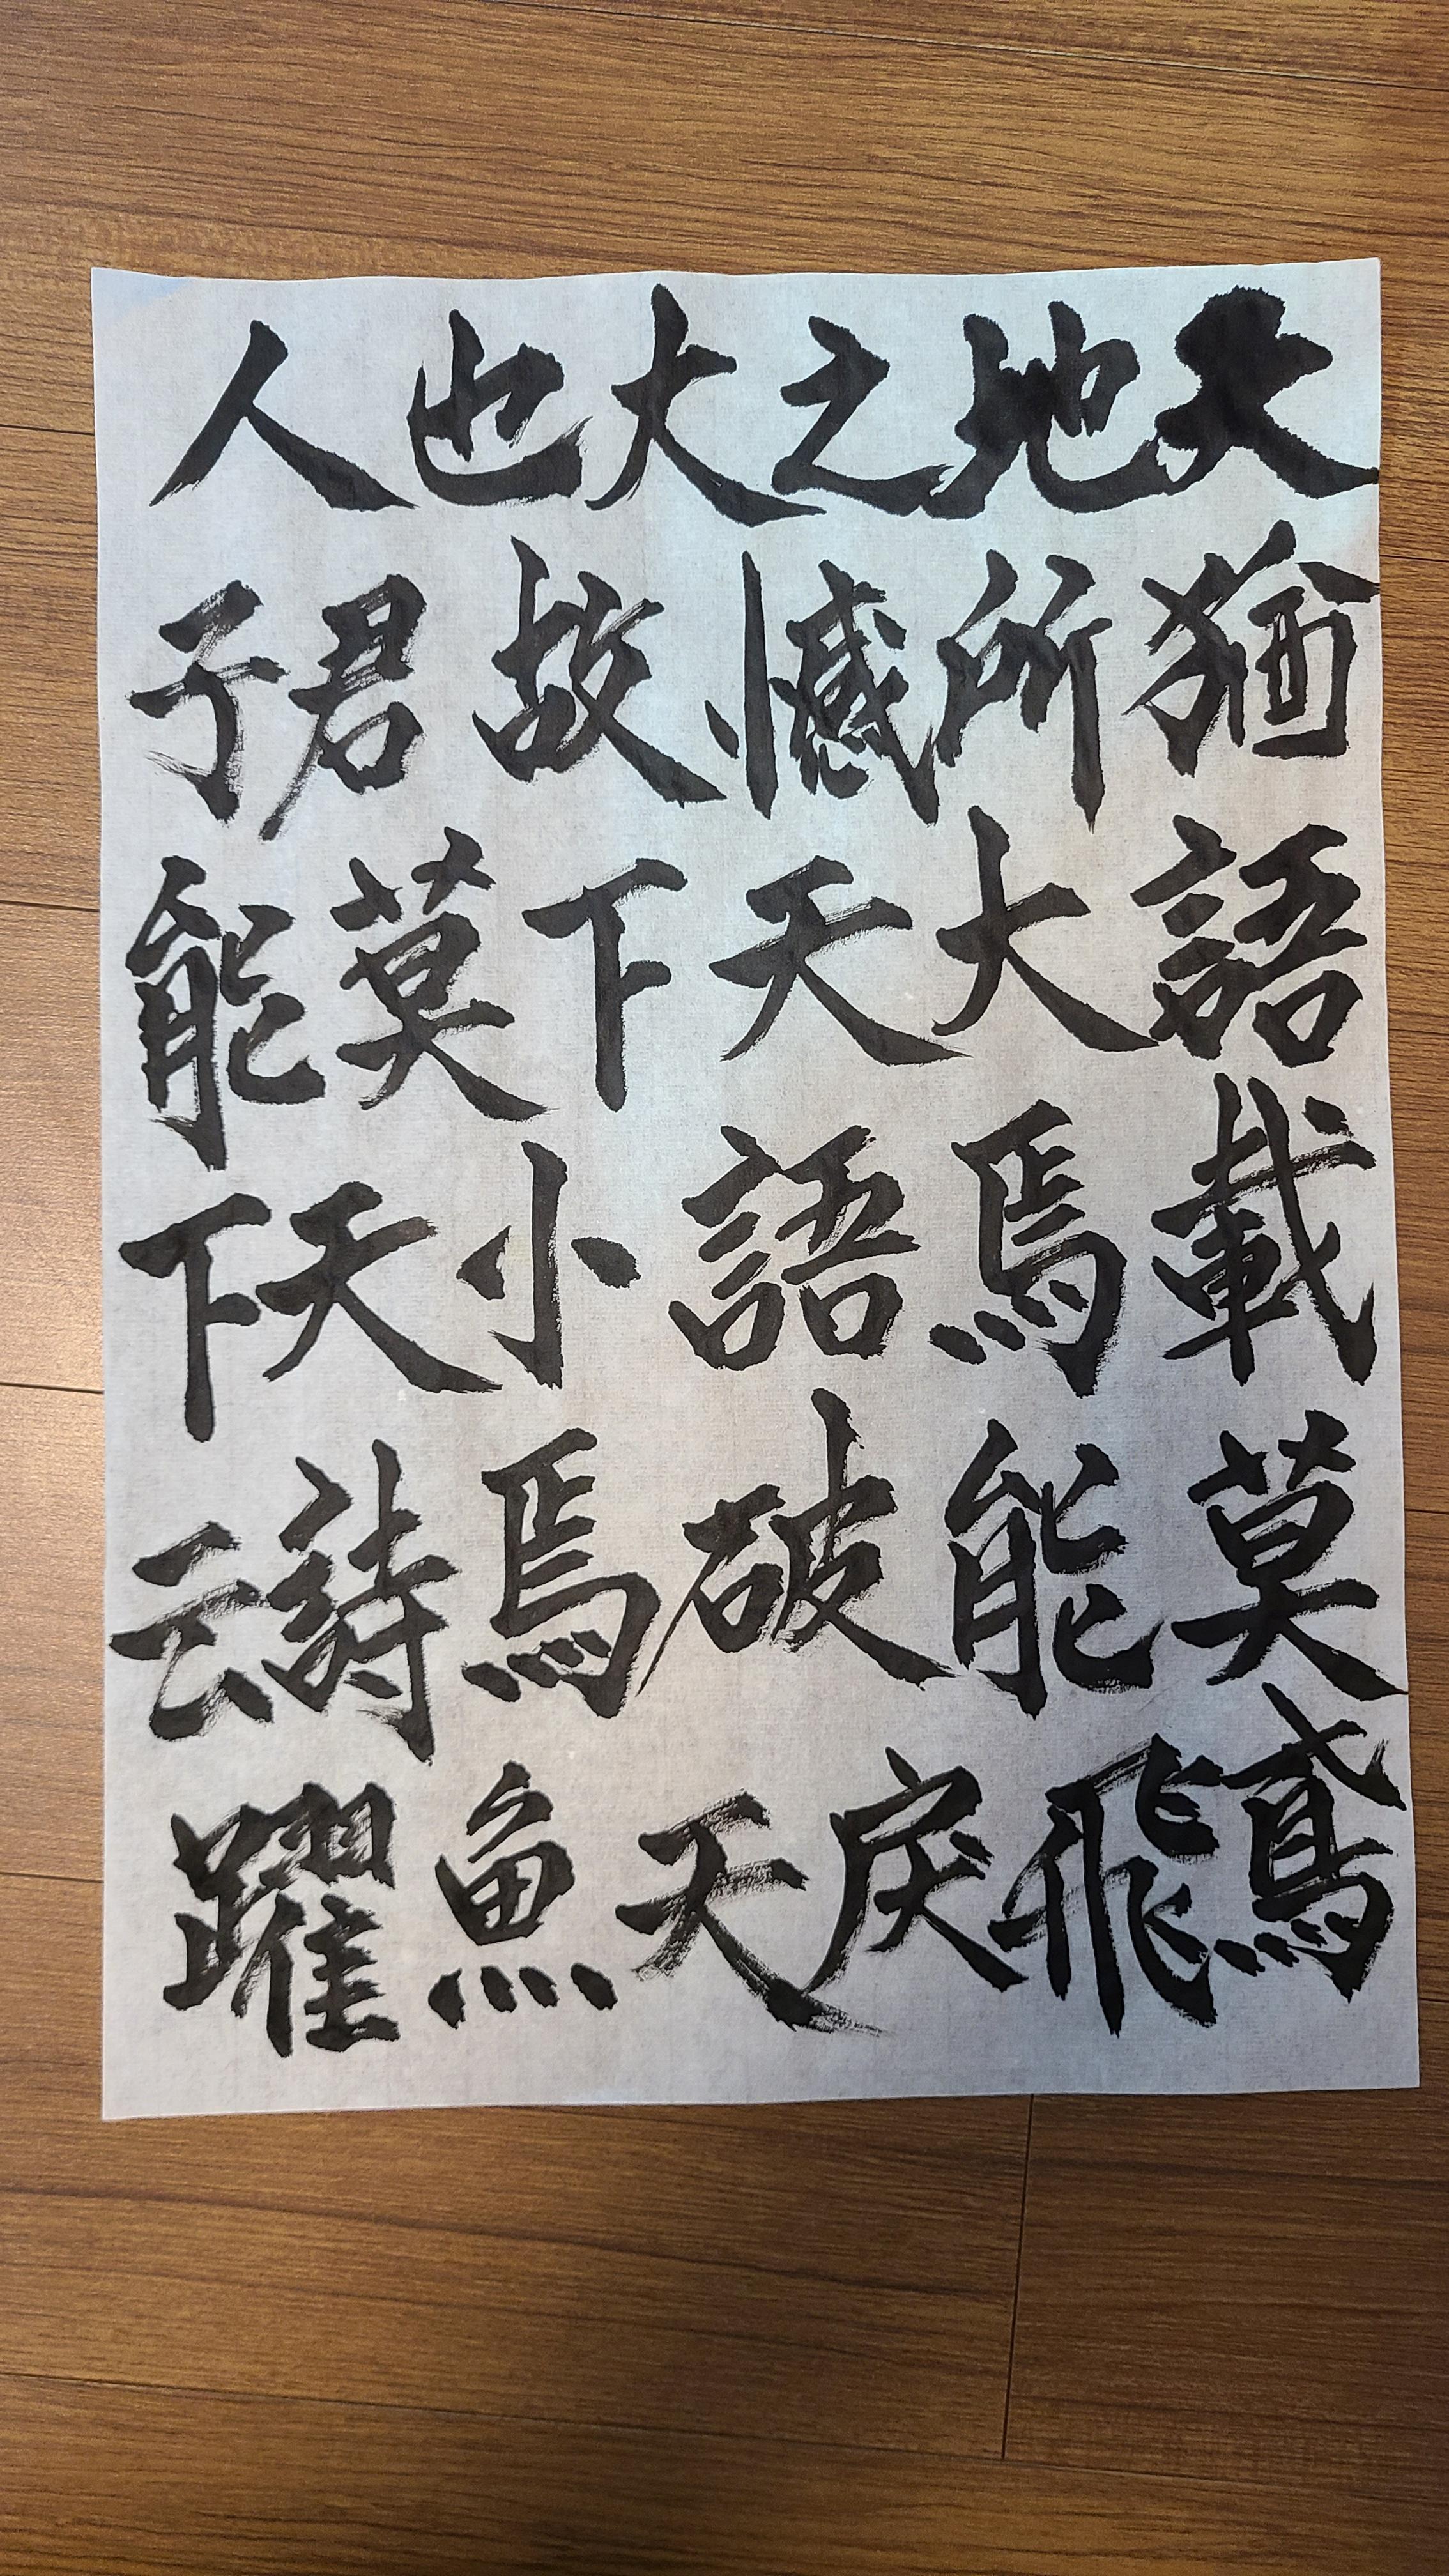 天地之大也人
猶所憾故君子
語大天下莫能
載焉語小天下
莫能破焉詩云
鳶飛戾天魚躍